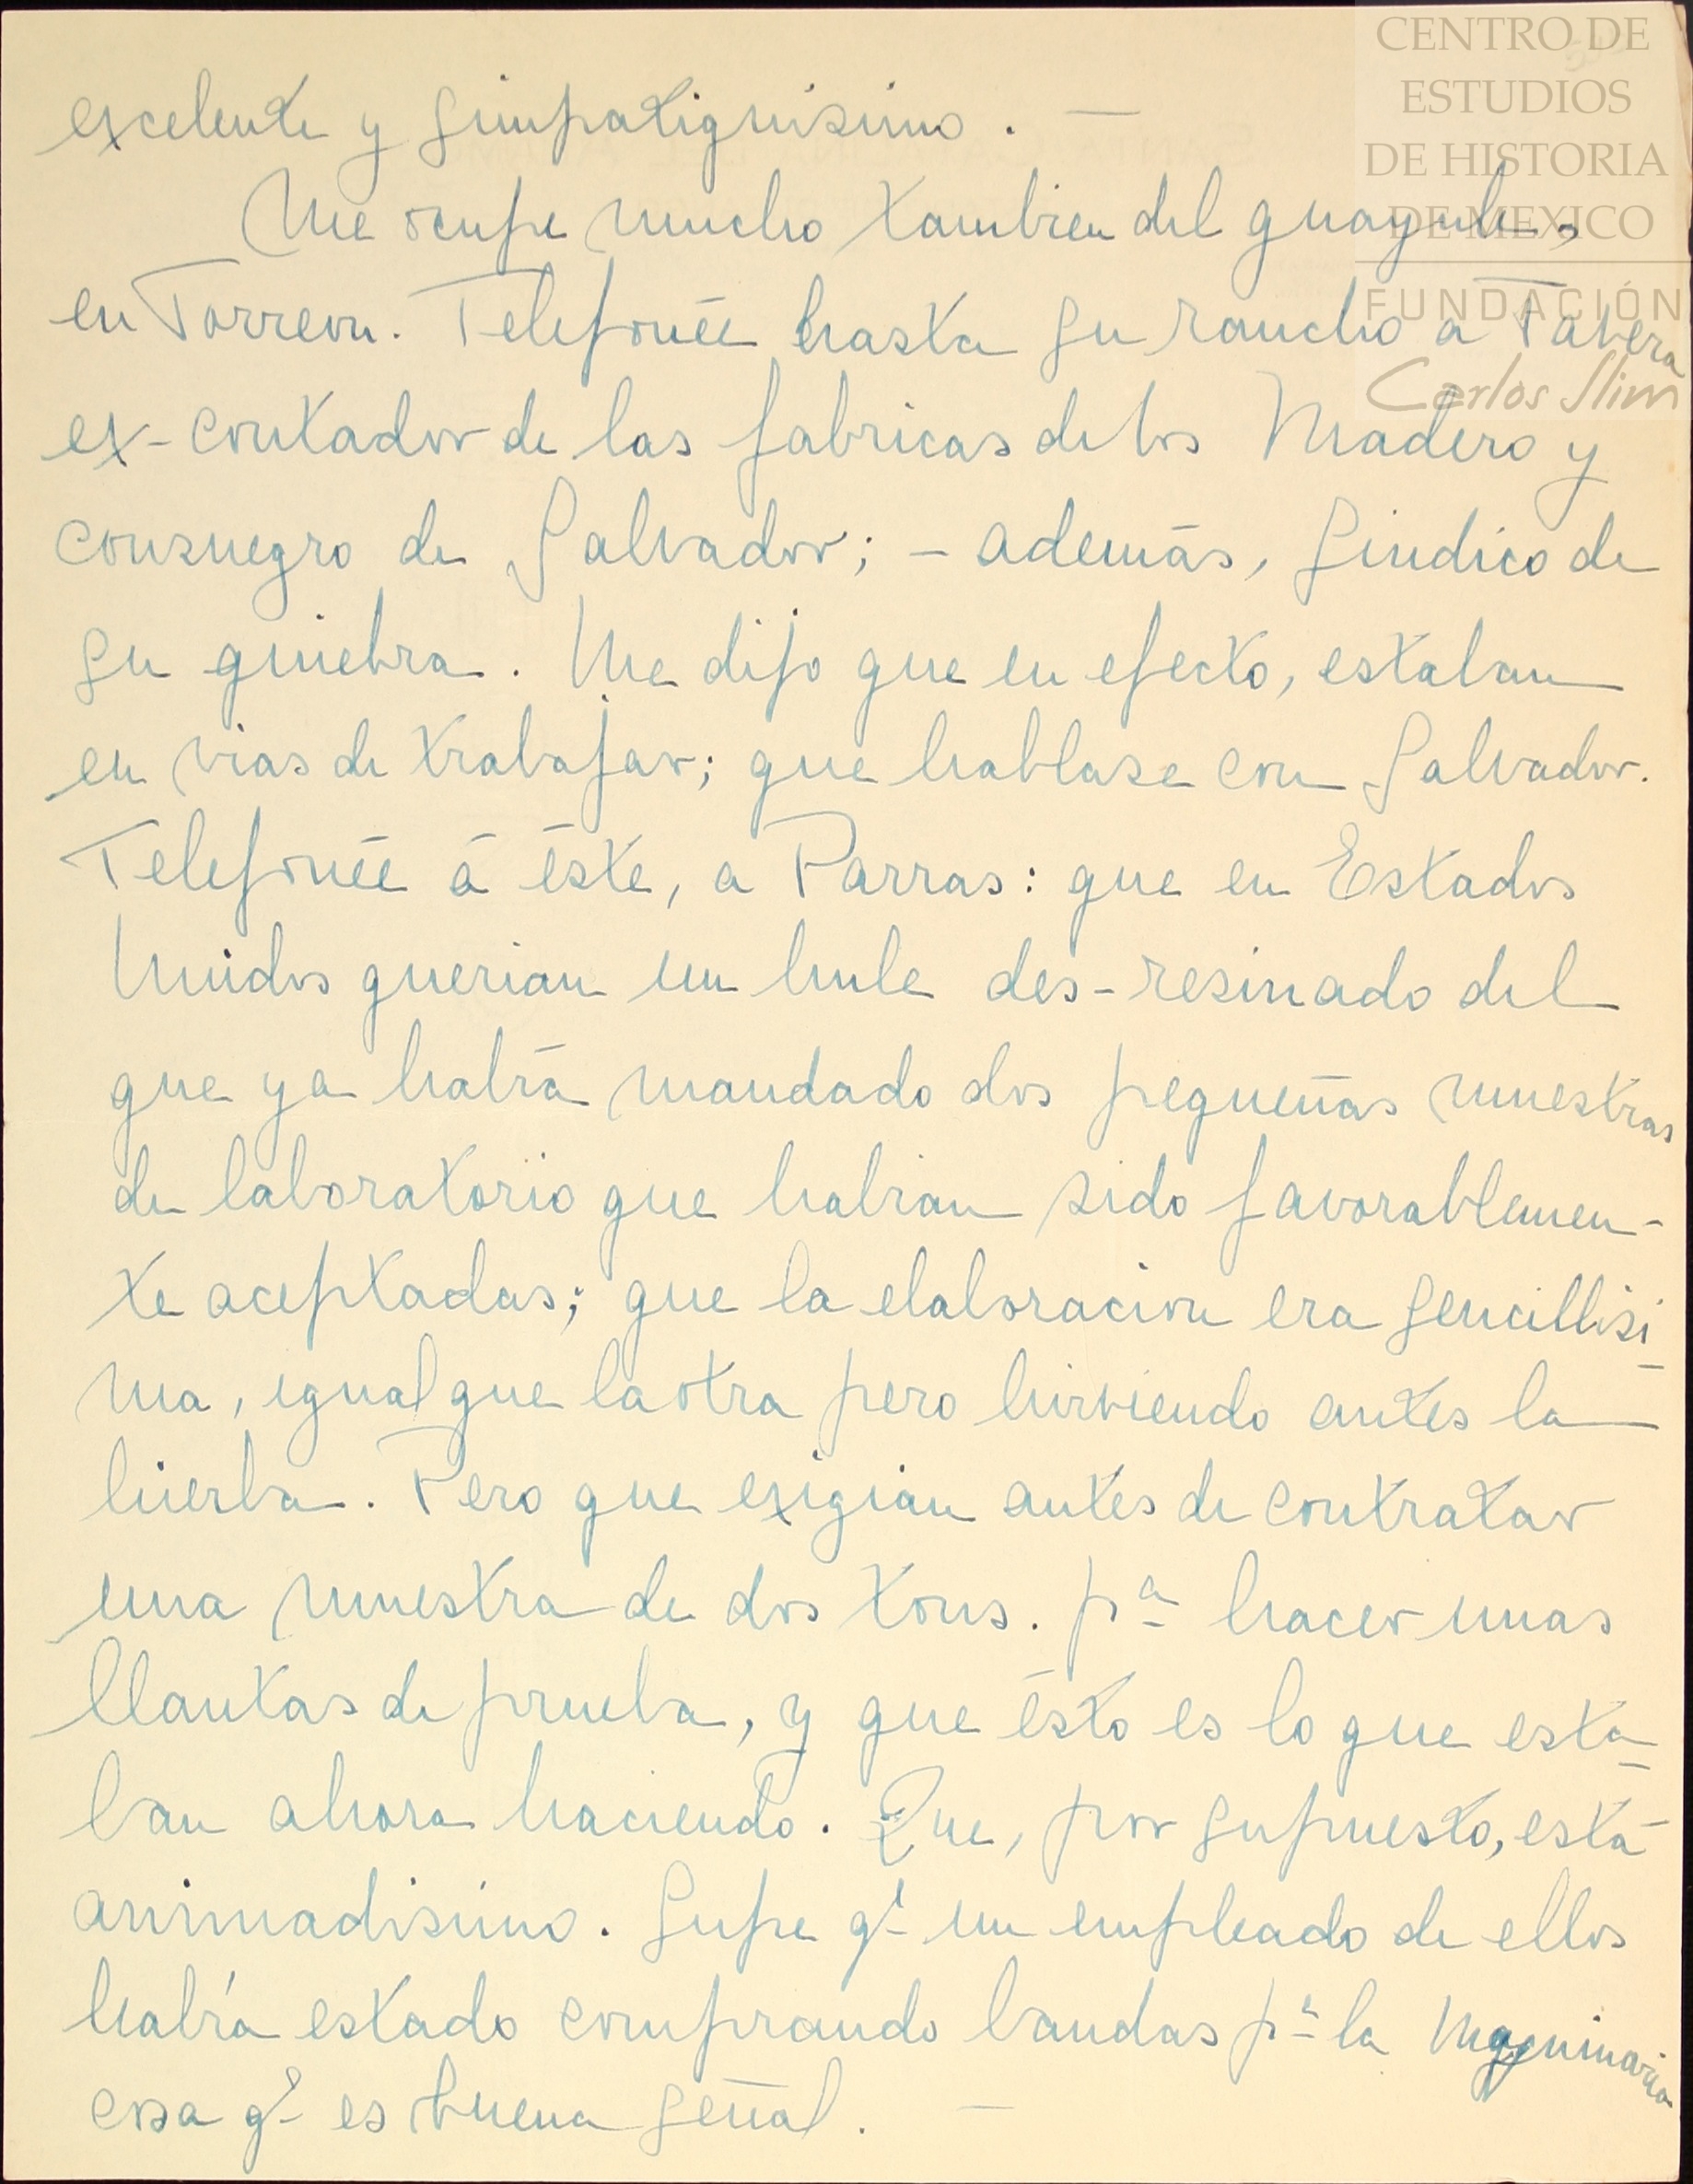 CENTRO DE
ESTUDIOS
DE HISTORIA
DE MEXICO
FUNDACIÓN
Carlos Slim
excelente y simpatiquisimo. —
Me ocupé mucho tambien del guayule,
en Torreon. Telefonée hasta su rancho a Tabera
ex-contador de las fabricas de los Madero y
consuegro de Salvador; - además, Sindico de
su quiebra. Me dijo que en efecto, estaban
en vias de trabajar; que hablase con Salvador.
Telefonée á éste, a Parras: que en Estados
Unidos querian un hule des-resinado del
que ya habiá mandado dos pequeñas muestras
de laboratorio que habian sido favorablemen-
te aceptadas; que la elaboracion era sencillisi-
ma, igual que la otra pero hirviendo antes la
hierba. Pero que exigian antes de contratar
una muestra de dos tons. pª hacer unas
llantas de prueba, y que ésto es lo que esta-
ban ahora haciendo. Que, por supuesto, está
animadisimo. Supe qᵉ un empleado de ellos
había estado comprando bandas pª la Maquinaria
cosa qᵉ es buena señal. —